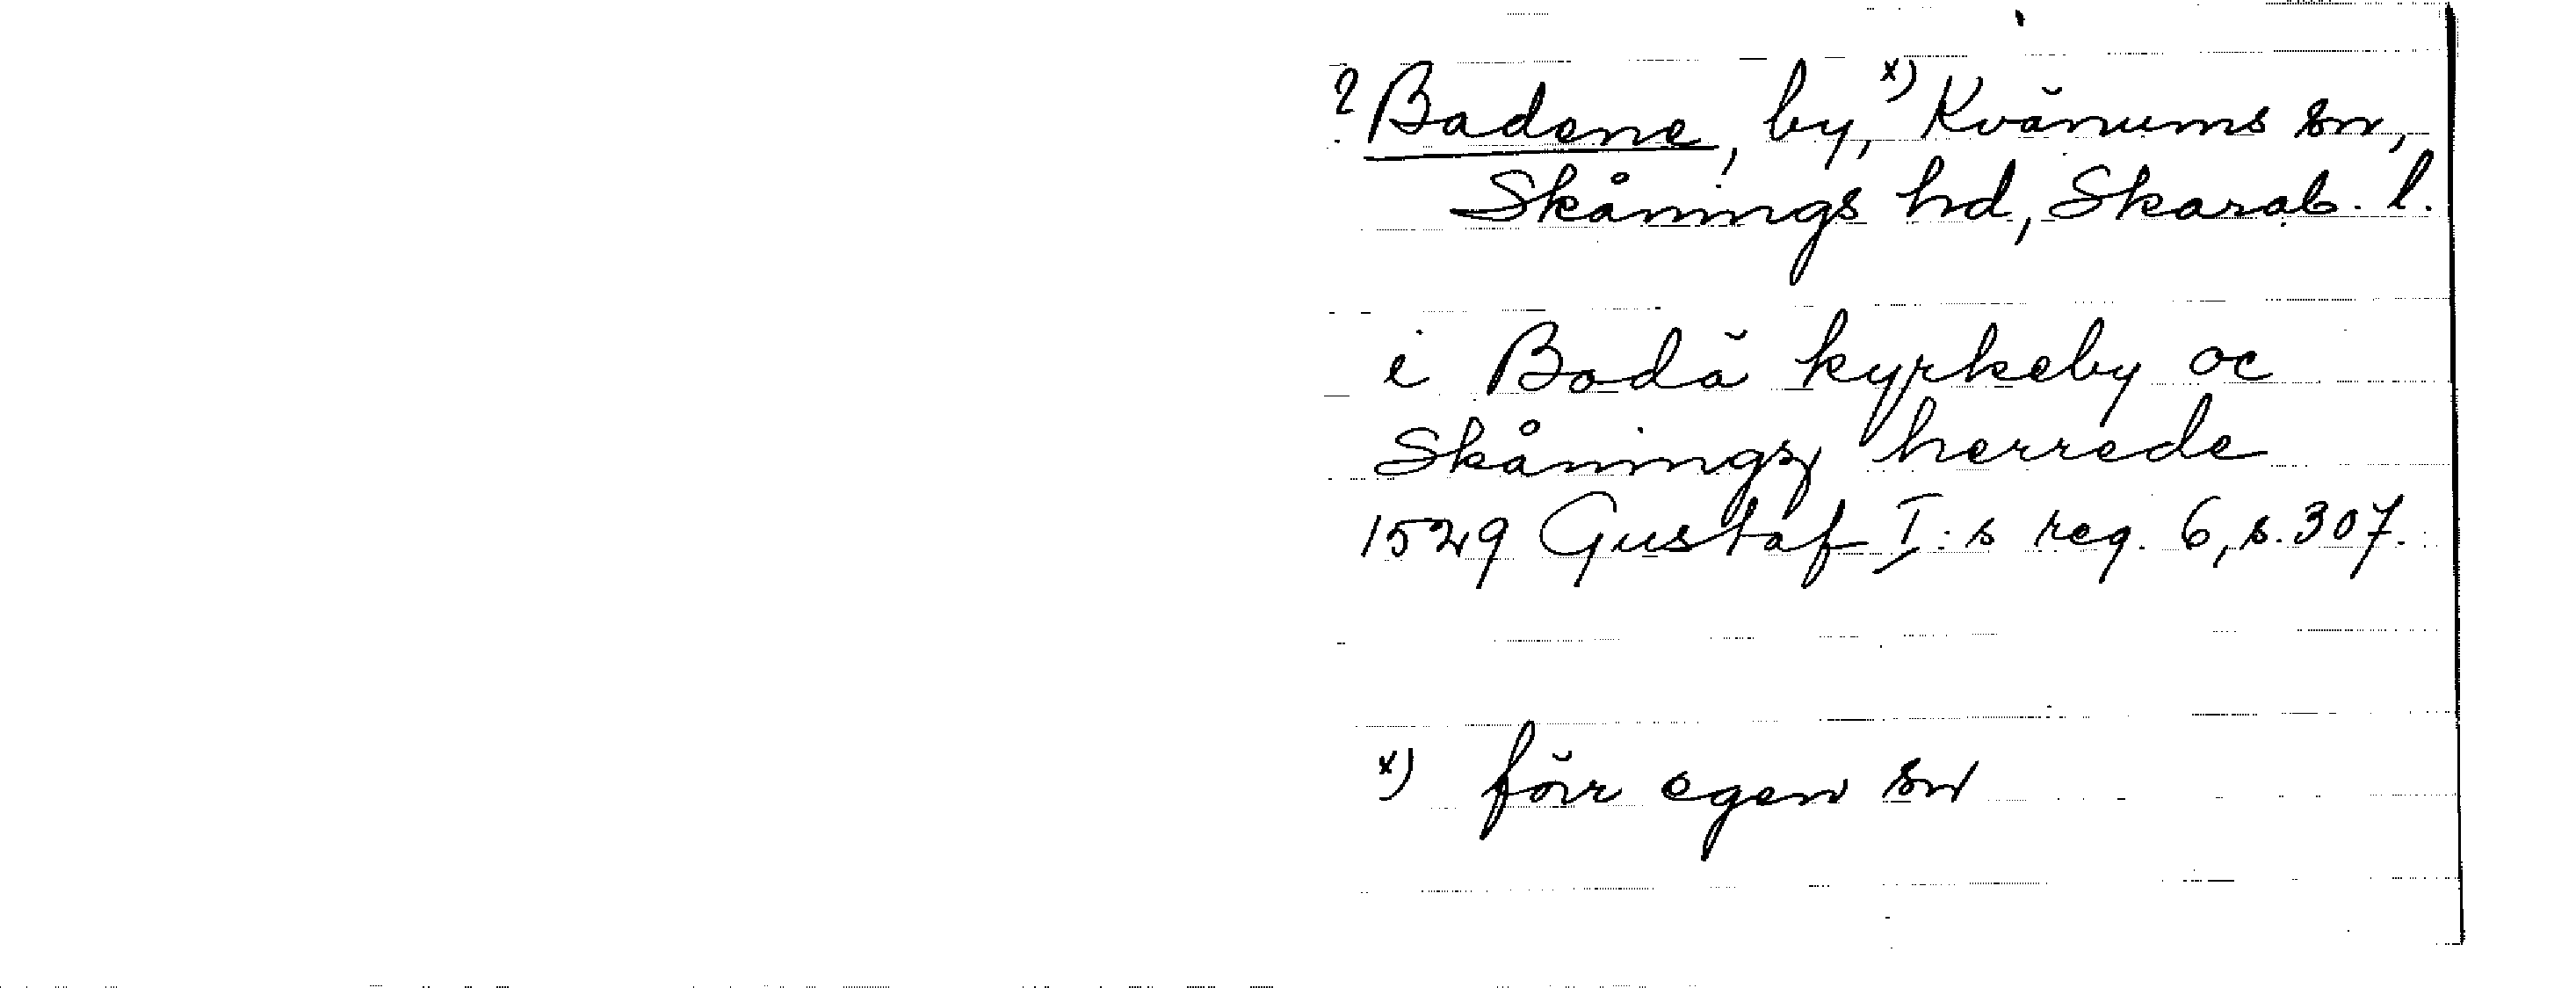 ? Badene, by,ˣ⁾ Kvänums sn,
Skånings hd, Skarab. l.
i Bodä kyrkeby oc
Skåningz herrede
1529 Gustaf I:s reg. 6, s. 307.
x) förr egen sn